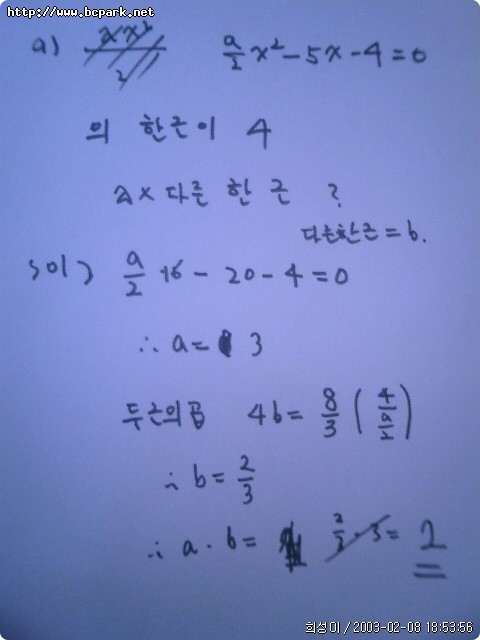 http://www.bcpark.net
a) a/2 x² - 5x - 4 = 0
의 한근이 4
a x 다른 한 근 ?
다른한근 = b.
sol) a/2 · 16 - 20 - 4 = 0
∴ a = 3
두근의곱 4b = 8/3 ( 4 / (a/2) )
∴ b = 2/3
∴ a · b = 2/3 · 3 = 2
희성이 / 2003-02-08 18:53:56